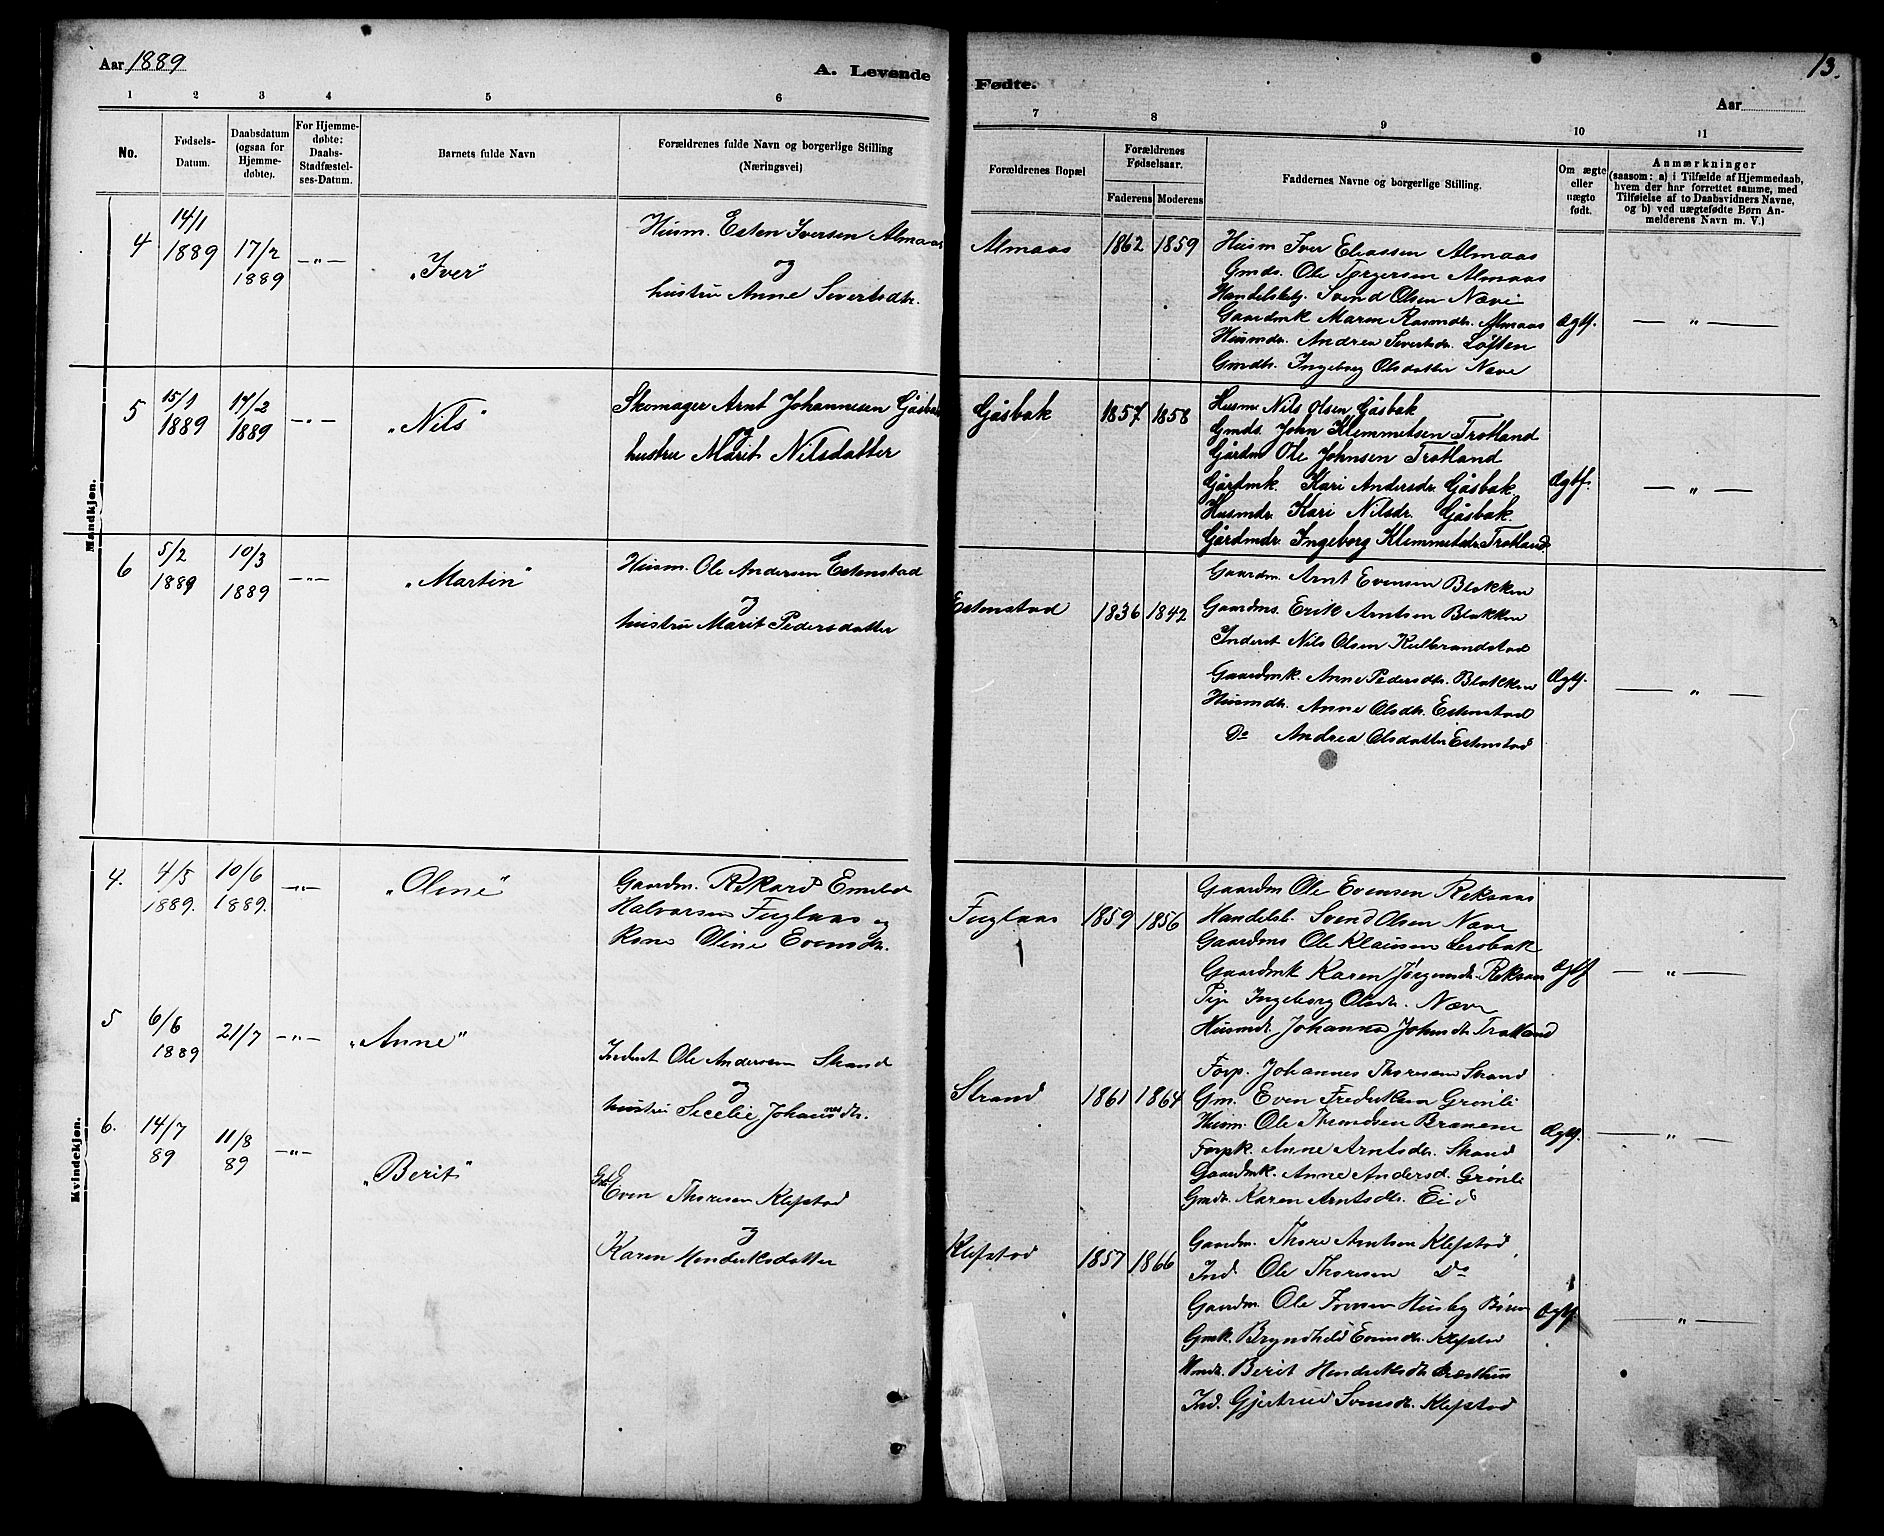 Aar 1889
A. Levende Fødte.
13.
Aar
1 2 3 4 5 6 7 8 9 10 11
No.
Fødsels-
Datum.
Daabsdatum
(ogsaa for
Hjemme-
døbte).
For Hjemme-
døbte:
Daabs-
Stadfæstel-
ses-Datum.
Barnets fulde Navn
Forældrenes fulde Navn og borgerlige Stilling
(Næringsvei)
Forældrenes Bopæl
Forældrenes
Fødselsaar.
Faderens Moderens
Faddernes Navne og borgerlige Stilling.
Om ægte
eller
uægte
født.
Anmærkninger
(saasom: a) i Tilfælde af Hjemmedaab,
hvem der har forrettet samme, med
Tilføielse af to Daabsvidners Navne,
og b) ved uægtefødte Børn An-
melderens Navn m. V.)
Mandkjøn.
4
14/1
1889
17/2
1889
—"—
"Iver"
Husm. Esten Iversen Almaas
og
hustru Anne Sivertsdtr.
Almaas
1862 1859
Husm Iver Eliassen Almaas
Gmds. Ole Torgersen Almaas
Handelsbtj. Svend Olsen Næve
Gaardmk Maren Rasmdtr. Almaas
Husmdr. Andrea Sivertsdr. Løften
Gmdtr. Ingeborg Olsdatter Næve
Ægtf.
— " —
5
15/1
1889
17/2
1889
—"—
"Nils"
Skomager Arnt Johannesen Gåsbak
og
hustru Marit Nilsdatter
Gåsbak
1857 1858
Husm Nils Olsen Gåsbak
Gmds. John Klemmetsen Trotland
Gårdm Ole Johnsen Trotland
Gårdmk. Kari Andersdr. Gåsbak
Husmdr. Kari Nilsdr. Gåsbak.
Gårdmdr. Ingeborg Klemmetsdr. Trotland
Ægtf.
— " —
6
5/2
1889
10/3
1889
—"—
"Martin"
Husm. Ole Andersen Estenstad
og
hustru Marit Pedersdatter
Estenstad
1836 1842
Gaardm. Arnt Evensen Blekken
Gaardms. Erik Arntsen Blekken
Inderst Nils Olsen Kulbrandstad
Gaardmk. Anne Pedersdtr. Blekken
Husmdtr. Anne Olsdtr. Estenstad
Do Andrea Olsdatter Estenstad
Ægtf.
— " —
Kvindekjøn.
4.
4/5
1889.
10/6
1889.
—"—
"Oline"
Gaardm. Rikard
Halvorsen Fuglaas og
Kone Oline Evensdtr.
Fuglaas
1859 1856
Gaardm Ole Evensen Reksaas
Handelsb. Svend Olsen Næve
Gaardms Ole Klausen Lerobak
Gaardmk Karen Jørgensdtr. Reksaas
Pige Ingeborg Olsdtr. Næve
Husmdt. Johanna Johnsdtr. Trotland
Ægtf
— " —
5
6/6
1889
21/7
—"—
"Anne"
Inderst Ole Andersen Strand
og
hustru Secelie Johannesdtr.
Strand
1861 1864
Forp. Johannes Thoresen Strand
Gm. Even Frederiksen Grønli
Husm. Ole Thomdsen Brænene
Forpk. Anne Arntsdtr. Strand
Gaardmk. Anne Andersd. Grønli
Gmdt. Karen Arntsdtr. Eid
Ægtf.
— " —
6.
14/7
89
11/8
89
—"—
"Berit"
Even Thoresen Klefstad
og
Karen Hendriksdatter
Klefstad
1857 1866
Gaardm. Thore Arntsen Klefstad,
Ind. Ole Thoresen Do
Gaardm. Ole Husby Børsen
Gmk. Bryndhild Evensdtr. Klefstad
Berit Hendriksdtr.
Ind. Gjertrud Svensdtr. Klefstad
Ægtf.
— " —